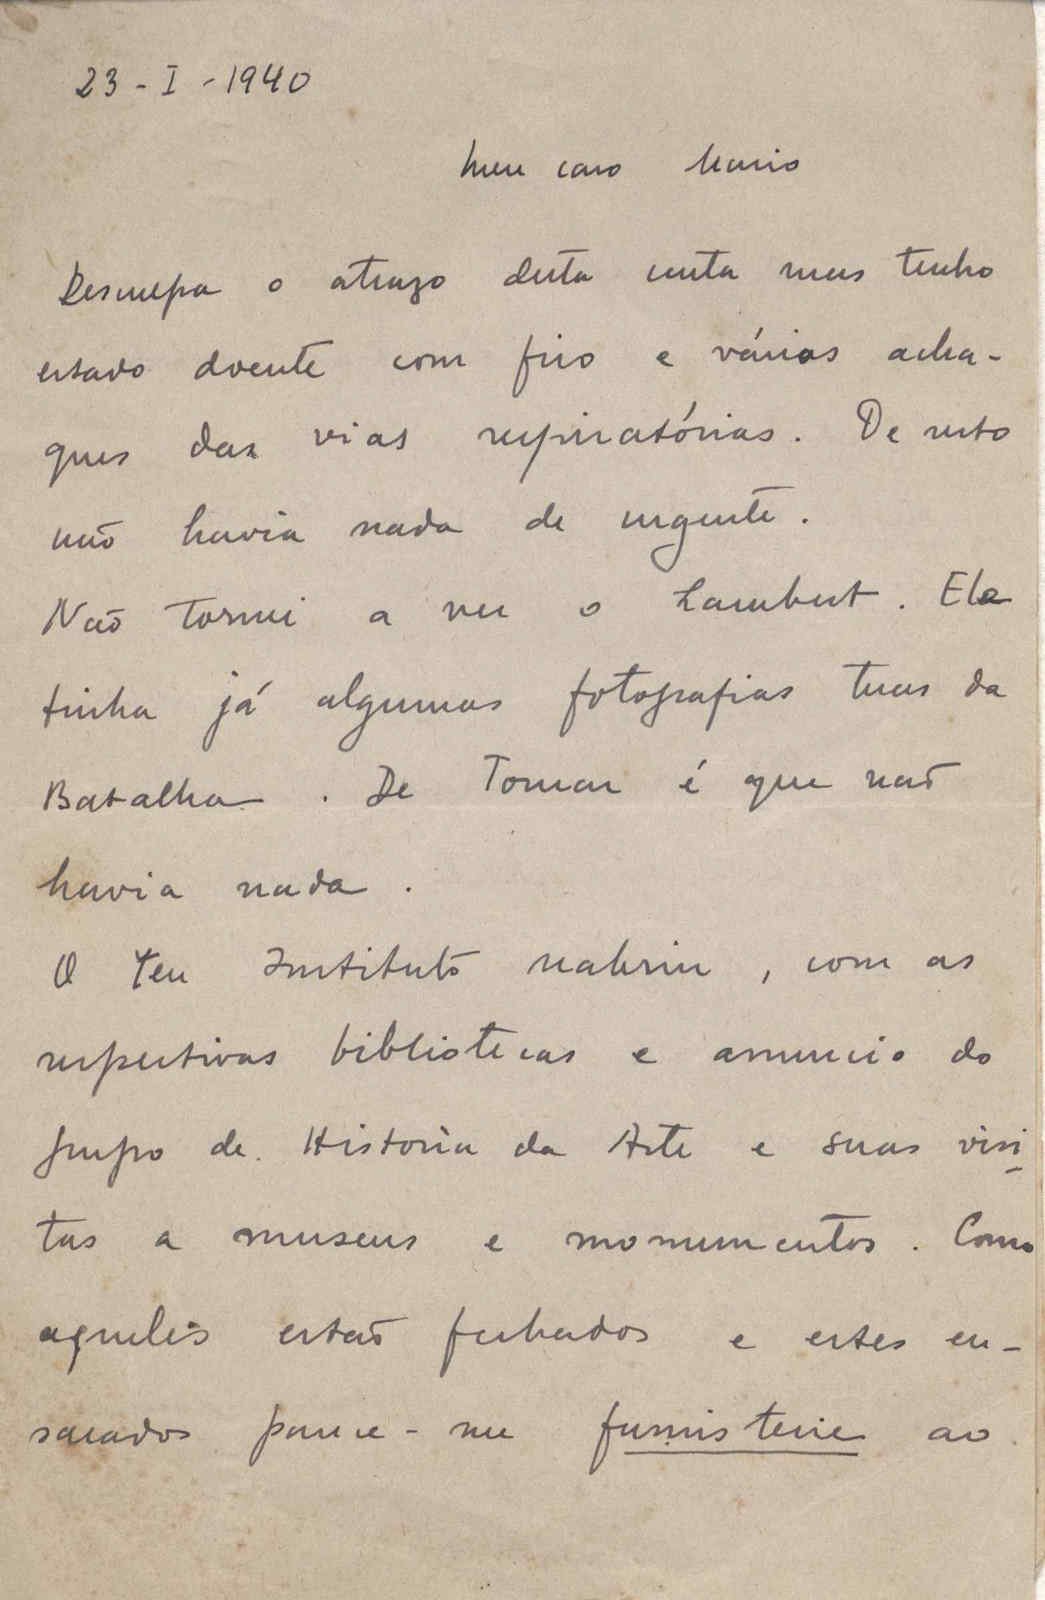 23 - I - 1940
Meu caro Mario
Desculpa o atrazo desta carta mas tenho
estado doente com frio e várias acha-
ques das vias respiratórias. De resto
não havia nada de urgente.
Não tornei a ver o Lambert. Ele
tinha já algumas fotografias tuas da
Batalha. De Tomar é que não
havia nada.
O teu Instituto reabriu, com as
respectivas bibliotecas e anuncio do
grupo de Historia da Arte e suas visi-
tas a museus e monumentos. Como
aqueles estão fechados e estes en-
sacados parece-me fumisterie ao